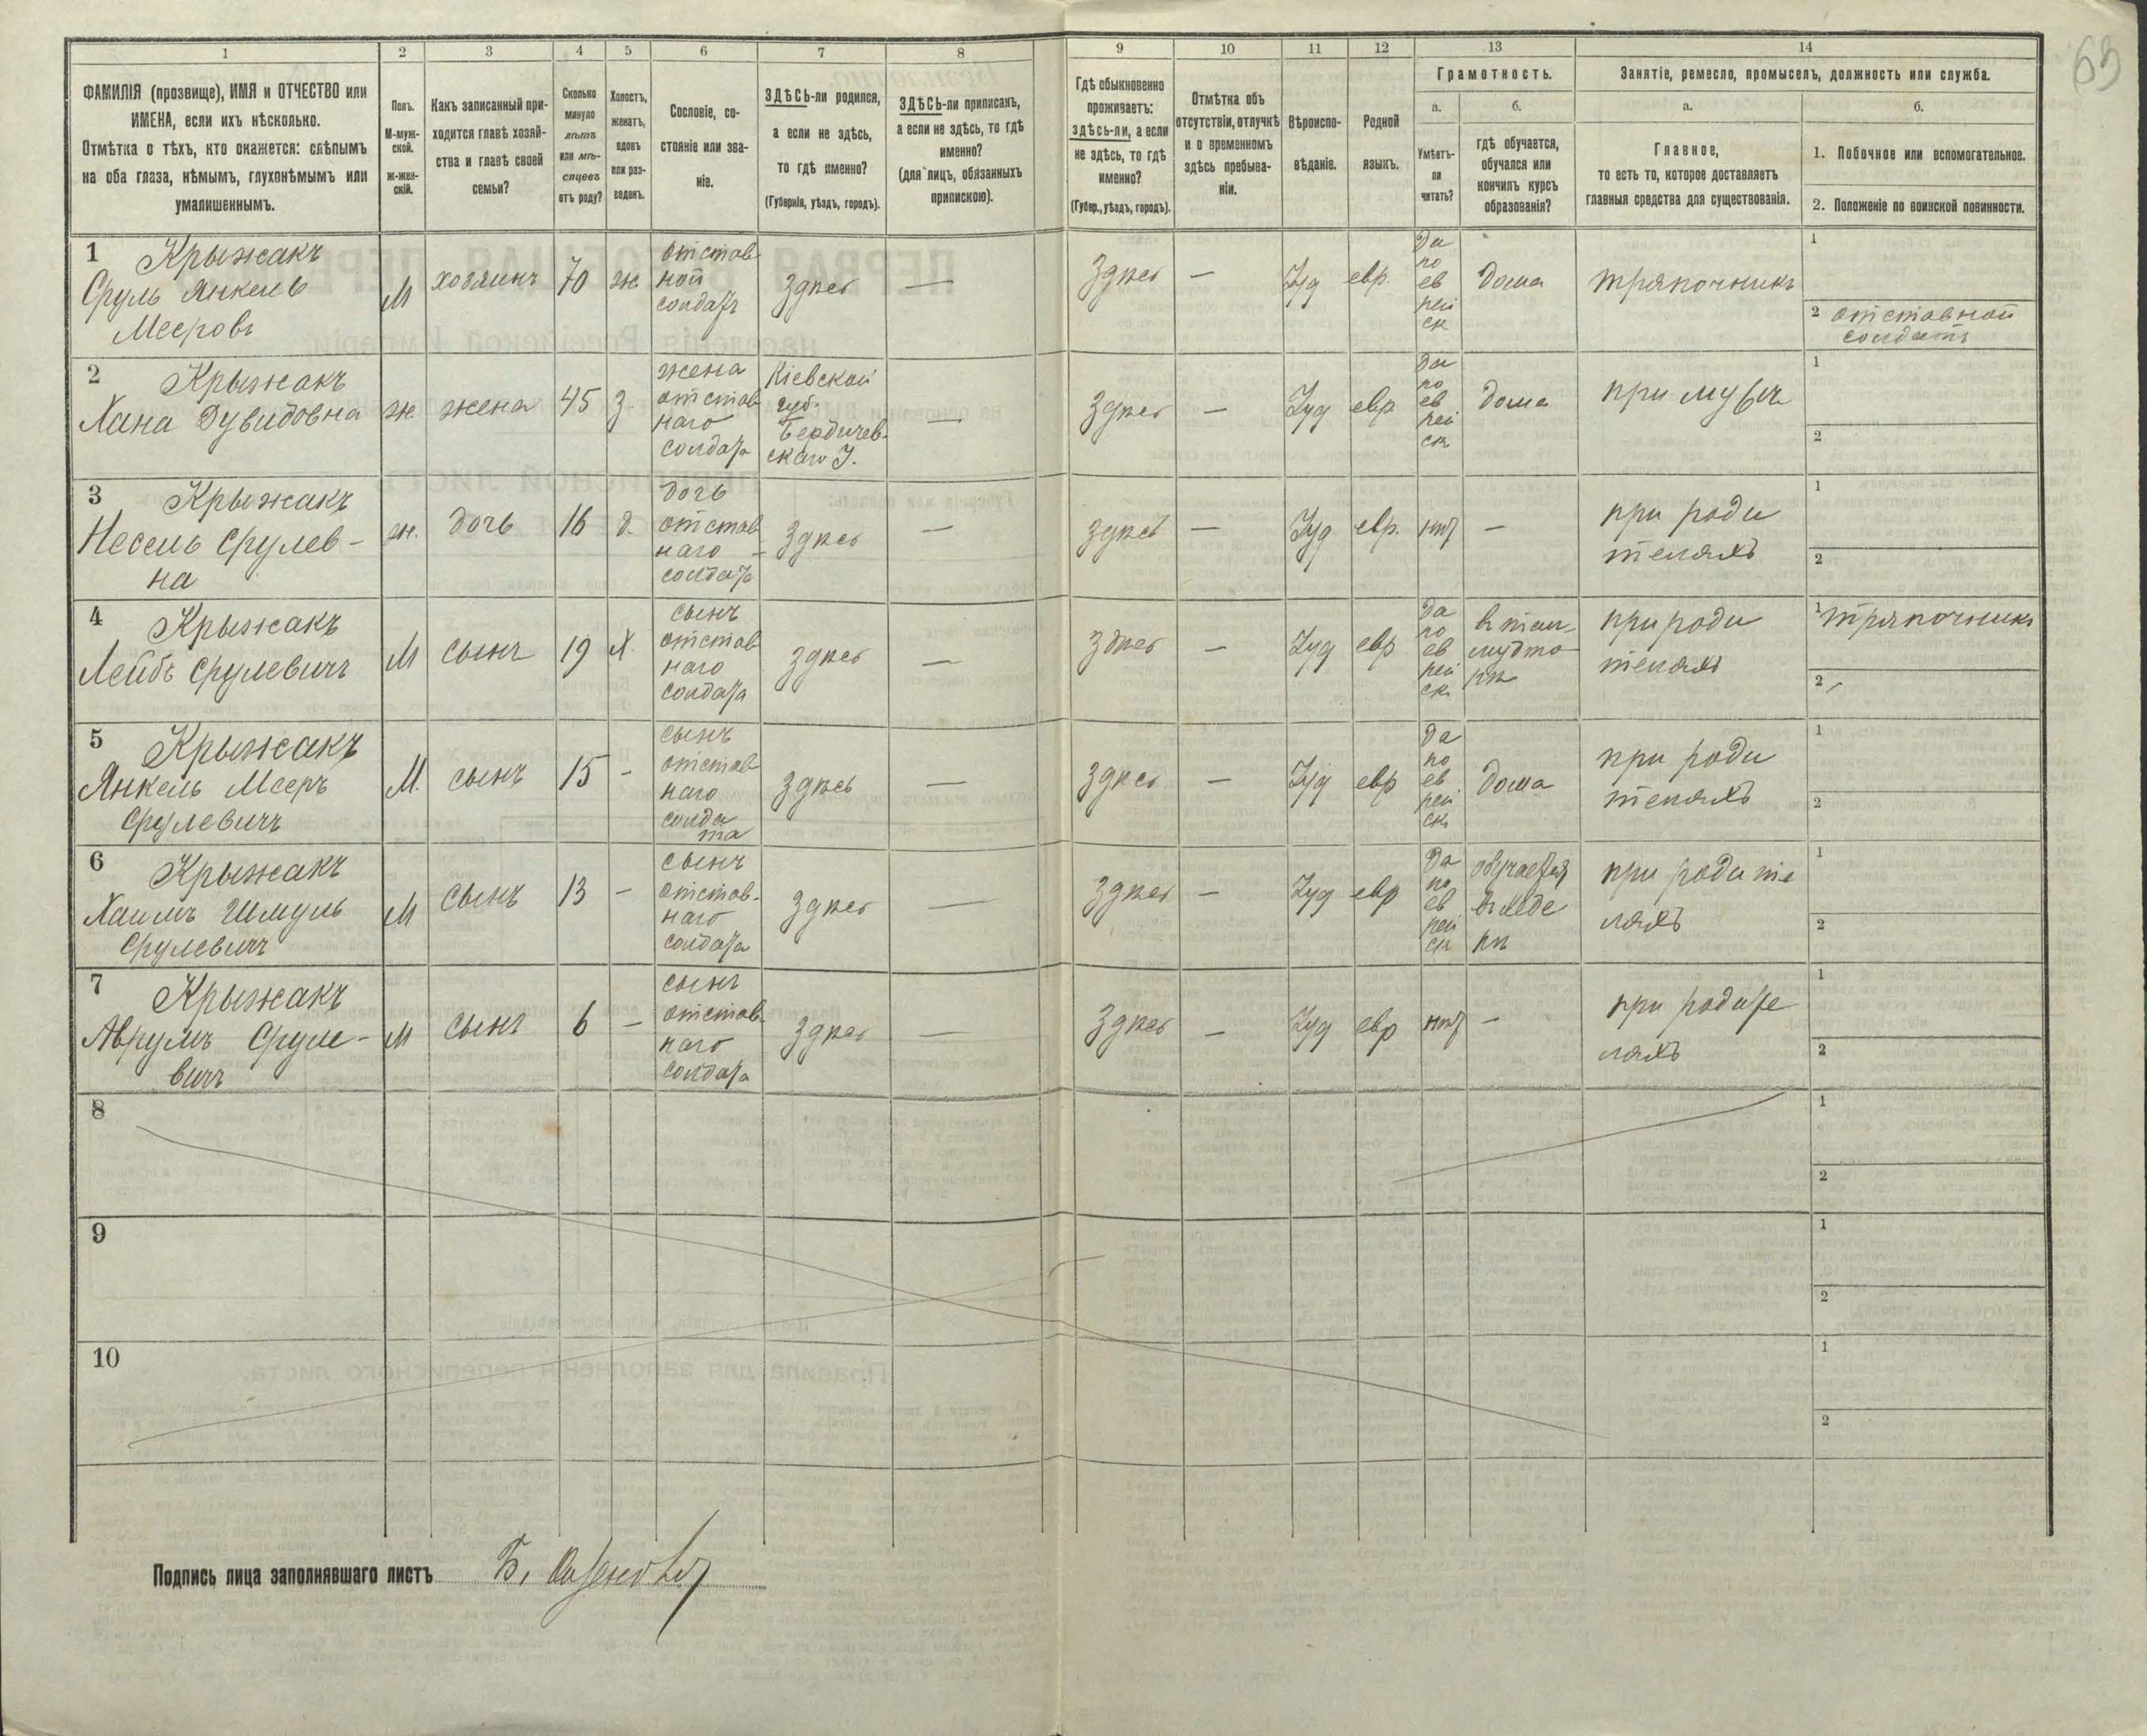 63
1
2
3
4
5
6
7
8
9
10
11
12
13
14
ФАМИЛІЯ (прозвище), ИМЯ и ОТЧЕСТВО или
ИМЕНА, если ихъ нѣсколько.
Отмѣтка о тѣхъ, кто окажется: слѣпымъ
на оба глаза, нѣмымъ, глухонѣмымъ или
умалишеннымъ.
Полъ.
М-муж-
ской.
ж-жен-
скій.
Какъ записанный при-
ходится главѣ хозяй-
ства и главѣ своей
семьи?
Сколько
минуло
лѣтъ
или мѣ-
сяцевъ
отъ роду?
Холостъ,
женатъ,
вдовъ
или раз-
веденъ.
Сословіе, со-
стояніе или зва-
ніе.
ЗДѢСЬ-ли родился,
а если не здѣсь,
то гдѣ именно?
(Губернія, уѣздъ, городъ).
ЗДѢСЬ-ли приписанъ,
а если не здѣсь, то гдѣ
именно?
(для лицъ, обязанныхъ
припискою).
Гдѣ обыкновенно
проживаетъ:
здѣсь-ли, а если
не здѣсь, то гдѣ
именно?
(Губер., уѣздъ, городъ).
Отмѣтка объ
отсутствіи, отлучкѣ
и о временномъ
здѣсь пребыва-
ніи.
Вѣроиспо-
вѣданіе.
Родной
языкъ.
Грамотность.
а.
Умѣетъ-
ли
читать?
б.
гдѣ обучается,
обучался или
кончилъ курсъ
образованія?
Занятіе, ремесло, промыселъ, должность или служба.
а.
Главное,
то есть то, которое доставляетъ
главныя средства для существованія.
б.
1. Побочное или вспомогательное.
2. Положеніе по воинской повинности.
1 Крыжакъ
Сруль Янкелев
Мееровъ
М
хозяинъ
70
ж.
отстав
ной
солдатъ
здѣсь
—
здѣсь
—
Іуд
евр.
да
по
ев
рей
ск
дома
тряпочникъ
1
2 отставной
солдатъ
2 Крыжакъ
Хана Дувидовна
ж.
жена
45
з.
жена
отстав
наго
солдата
Кіевской
губ.
Бердичев-
скаго у.
—
здѣсь
—
Іуд
евр
да
по
ев
рей
ск
дома
при мужѣ
1
2
3 Крыжакъ
Несель Срулев-
на
ж.
дочь
16
д.
дочь
отстав
наго
солдата
здѣсь
—
здѣсь
—
Іуд
евр.
нѣт
—
при роди
теляхъ
1
2
4 Крыжакъ
Лейбъ Срулевичъ
М
сынъ
19
х.
сынъ
отстав
наго
солдата
здѣсь
—
здѣсь
—
Іуд
евр
да
по
ев
рей
ск
въ тал-
мудто-
рѣ
при роди
теляхъ
1 тряпочникъ
2
5 Крыжакъ
Янкель Мееръ
Срулевичъ
М.
сынъ
15
-
сынъ
отстав
наго
солда
та
здѣсь
—
здѣсь
—
Іуд
евр
да
по
ев
рей
ск
дома
при роди
теляхъ
1
2
6 Крыжакъ
Хаимъ Шмуль
Срулевичъ
М
сынъ
13
-
сынъ
отстав-
наго
солдата
здѣсь
—
здѣсь
—
Іуд
евр
да
по
ев
рей
ск
обучается
въ хеде
рѣ
при родите
ляхъ
1
2
7 Крыжакъ
Аврумъ Сруле-
вичъ
М
сынъ
6
—
сынъ
отстав-
наго
солдата
здѣсь
—
здѣсь
—
Іуд
евр
нѣт
—
при родите
ляхъ
1
2
8
1
2
9
1
2
10
1
2
Подпись лица заполнявшаго листъ Б.